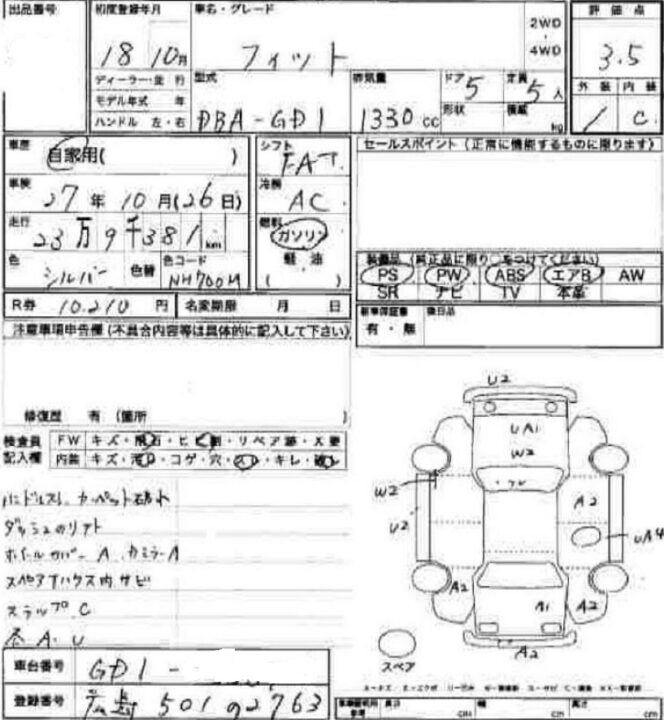 出品番号 初度登録年月 車名・グレード 2WD ・ 4WD 評価点
18 10月 フィット 3.5
ディーラー・並 行 型式 排気量 ドア 5 定員 5人 外装 内装
モデル年式 年 形状 積載 kg
ハンドル 左・右 DBA-GD1 1330 cc 1 C
車歴 自家用( ) シフト FAT セールスポイント(正常に機能するものに限ります)
車検 27年 10月(26日) 冷房 AC
走行 23万9千381km 燃料 ガソリン 軽油 ( )
色 シルバー 色替 色コード NH700M
装備品(純正品に限り○をつけてください)
PS PW ABS エアB AW
SR ナビ TV 本革
R券 10,210 円 名変期限 月 日
新車保証書 有・無 後日品
注意事項申告欄(不具合内容等は具体的に記入して下さい)
修復歴 有(箇所 )
検査員記入欄 FW キズ・飛石・ヒビ割・リペア跡・X要
内装 キズ・汚レ・コゲ・穴・スレ・キレ・破レ
ダッシュのリアト
ホイールカバーA、カミラーA
スペアタイハウス内サビ
ステップC
A. U
車台番号 GD1-
登録番号 広島 501 92763
U2
UA1
W2
W2
U2
A2
UA4
A2
A1
A2
A2
スペア
長さ cm 幅 cm 高さ cm